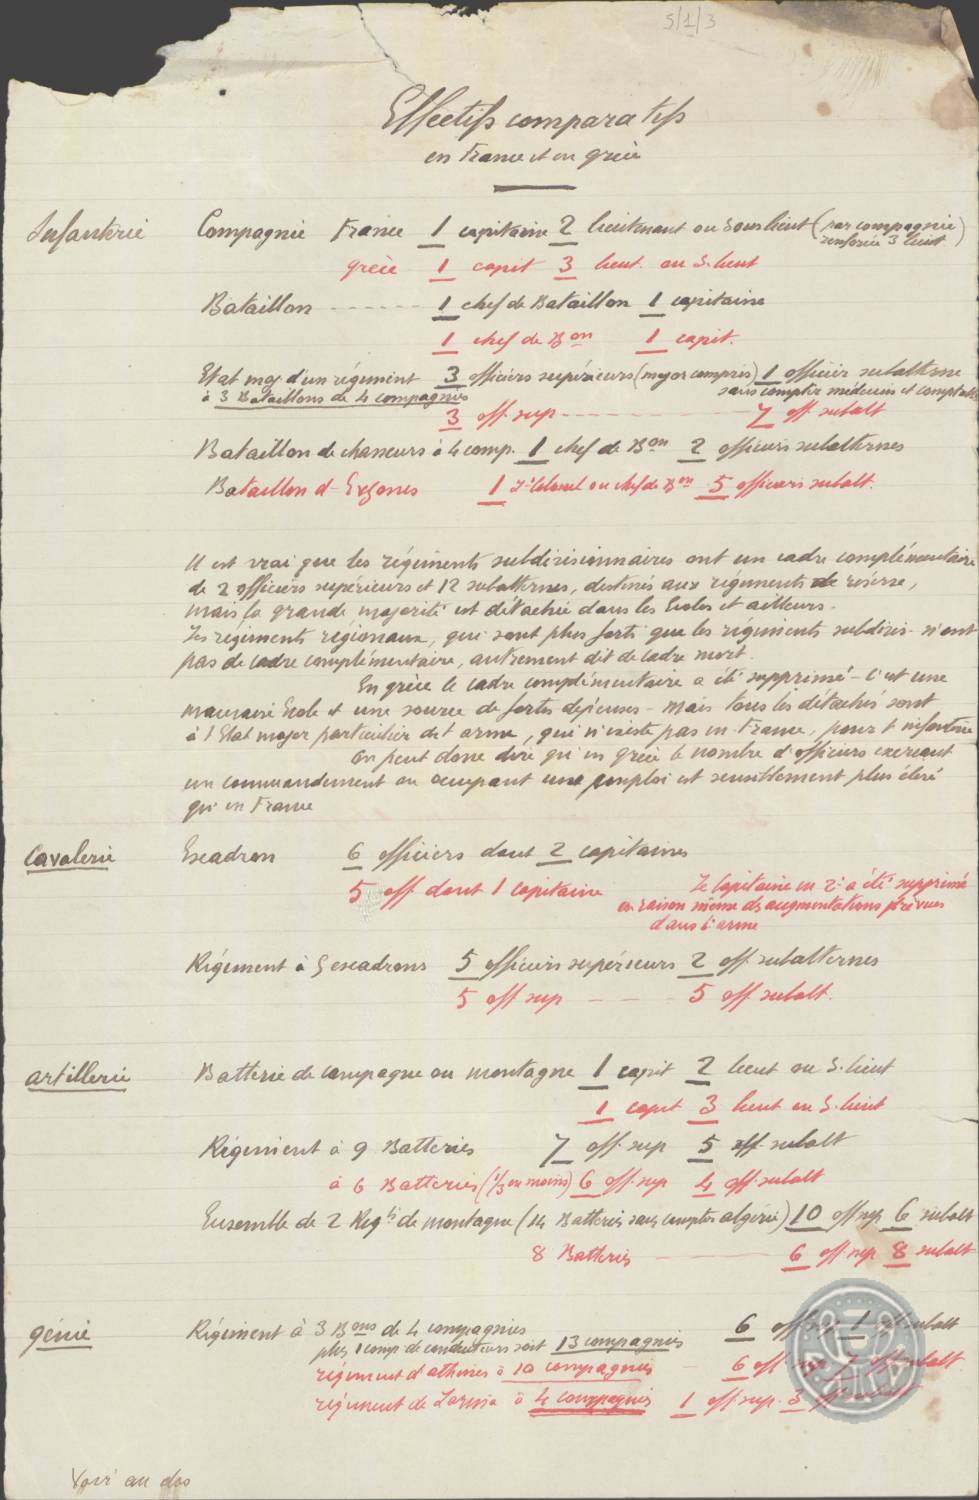 5/1/3
Effectifs comparatifs
en France et en grèce
Infanterie Compagnie France 1 capitaine 2 lieutenant ou Souslieut (par compagnie
renforcée 3 lieut)
grèce 1 capit 3 lieut. ou S. lieut
Bataillon - - - - - - 1 chef de Bataillon 1 capitaine
1 chef de Bon 1 capit.
Etat maj d'un régiment 3 officiers supérieurs (major compris) 1 officier subalterne
à 3 Bataillons de 4 compagnies sans compter médecins et comptable
3 off sup - - - - - - 7 off subalt
Bataillon de chasseurs à 4 comp. 1 chef de Bon 2 officiers subalternes
Bataillon d'Evzones 1 Lt Colonel ou chef de Bon 5 officiers subalt.
Il est vrai que les régiments subdivisionnaires ont un cadre complémentaire
de 2 officiers supérieurs et 12 subalternes, destinés aux régiments de réserve,
mais la grande majorité est détachée dans les Ecoles et ailleurs.
Les régiments régionaux, qui sont plus forts que les régiments subdivis. n'ont
pas de cadre complémentaire, autrement dit de cadre mort.
En grèce le cadre complémentaire a été supprimé - C'est une
mauvaise Ecole et une source de fortes dépenses - Mais tous les détachés sont
à l'Etat major particulier de l'arme, qui n'existe pas en France, pour l'infanterie
On peut donc dire qu'en grèce le nombre d'officiers exerçant
un commandement ou occupant une emploi est sensiblement plus élevé
qu'en France
Cavalerie Escadron 6 officiers dont 2 capitaines
5 off dont 1 capitaine Le Capitaine en 2d a été supprimé
en raison même des augmentations prévues
dans l'arme
Régiment à 5 escadrons 5 officiers supérieurs 2 off subalternes
5 off sup - - - 5 off subalt.
artillerie Batterie de campagne ou montagne 1 capit 2 lieut ou S. lieut
1 capit 3 lieut ou S. lieut
Régiment à 9 Batteries 7 off sup 5 off. subalt
à 6 Batteries (1/3 en moins) 6 off. sup 4 off subalt
Ensemble de 2 Regts de montagne (14 Batteries sans compter algérie) 10 off sup 6 subalt
8 Batteries 6 off sup 8 subalt
génie Régiment à 3 Bons de 4 compagnies 6 off sup 1 off subalt
plus 1 comp de conducteurs soit 13 compagnies
régiment d'athènes à 10 compagnies - 6 off sup 7 off subalt.
régiment de Larissa à 4 compagnies 1 off sup. 3 off subalt
Voir au dos